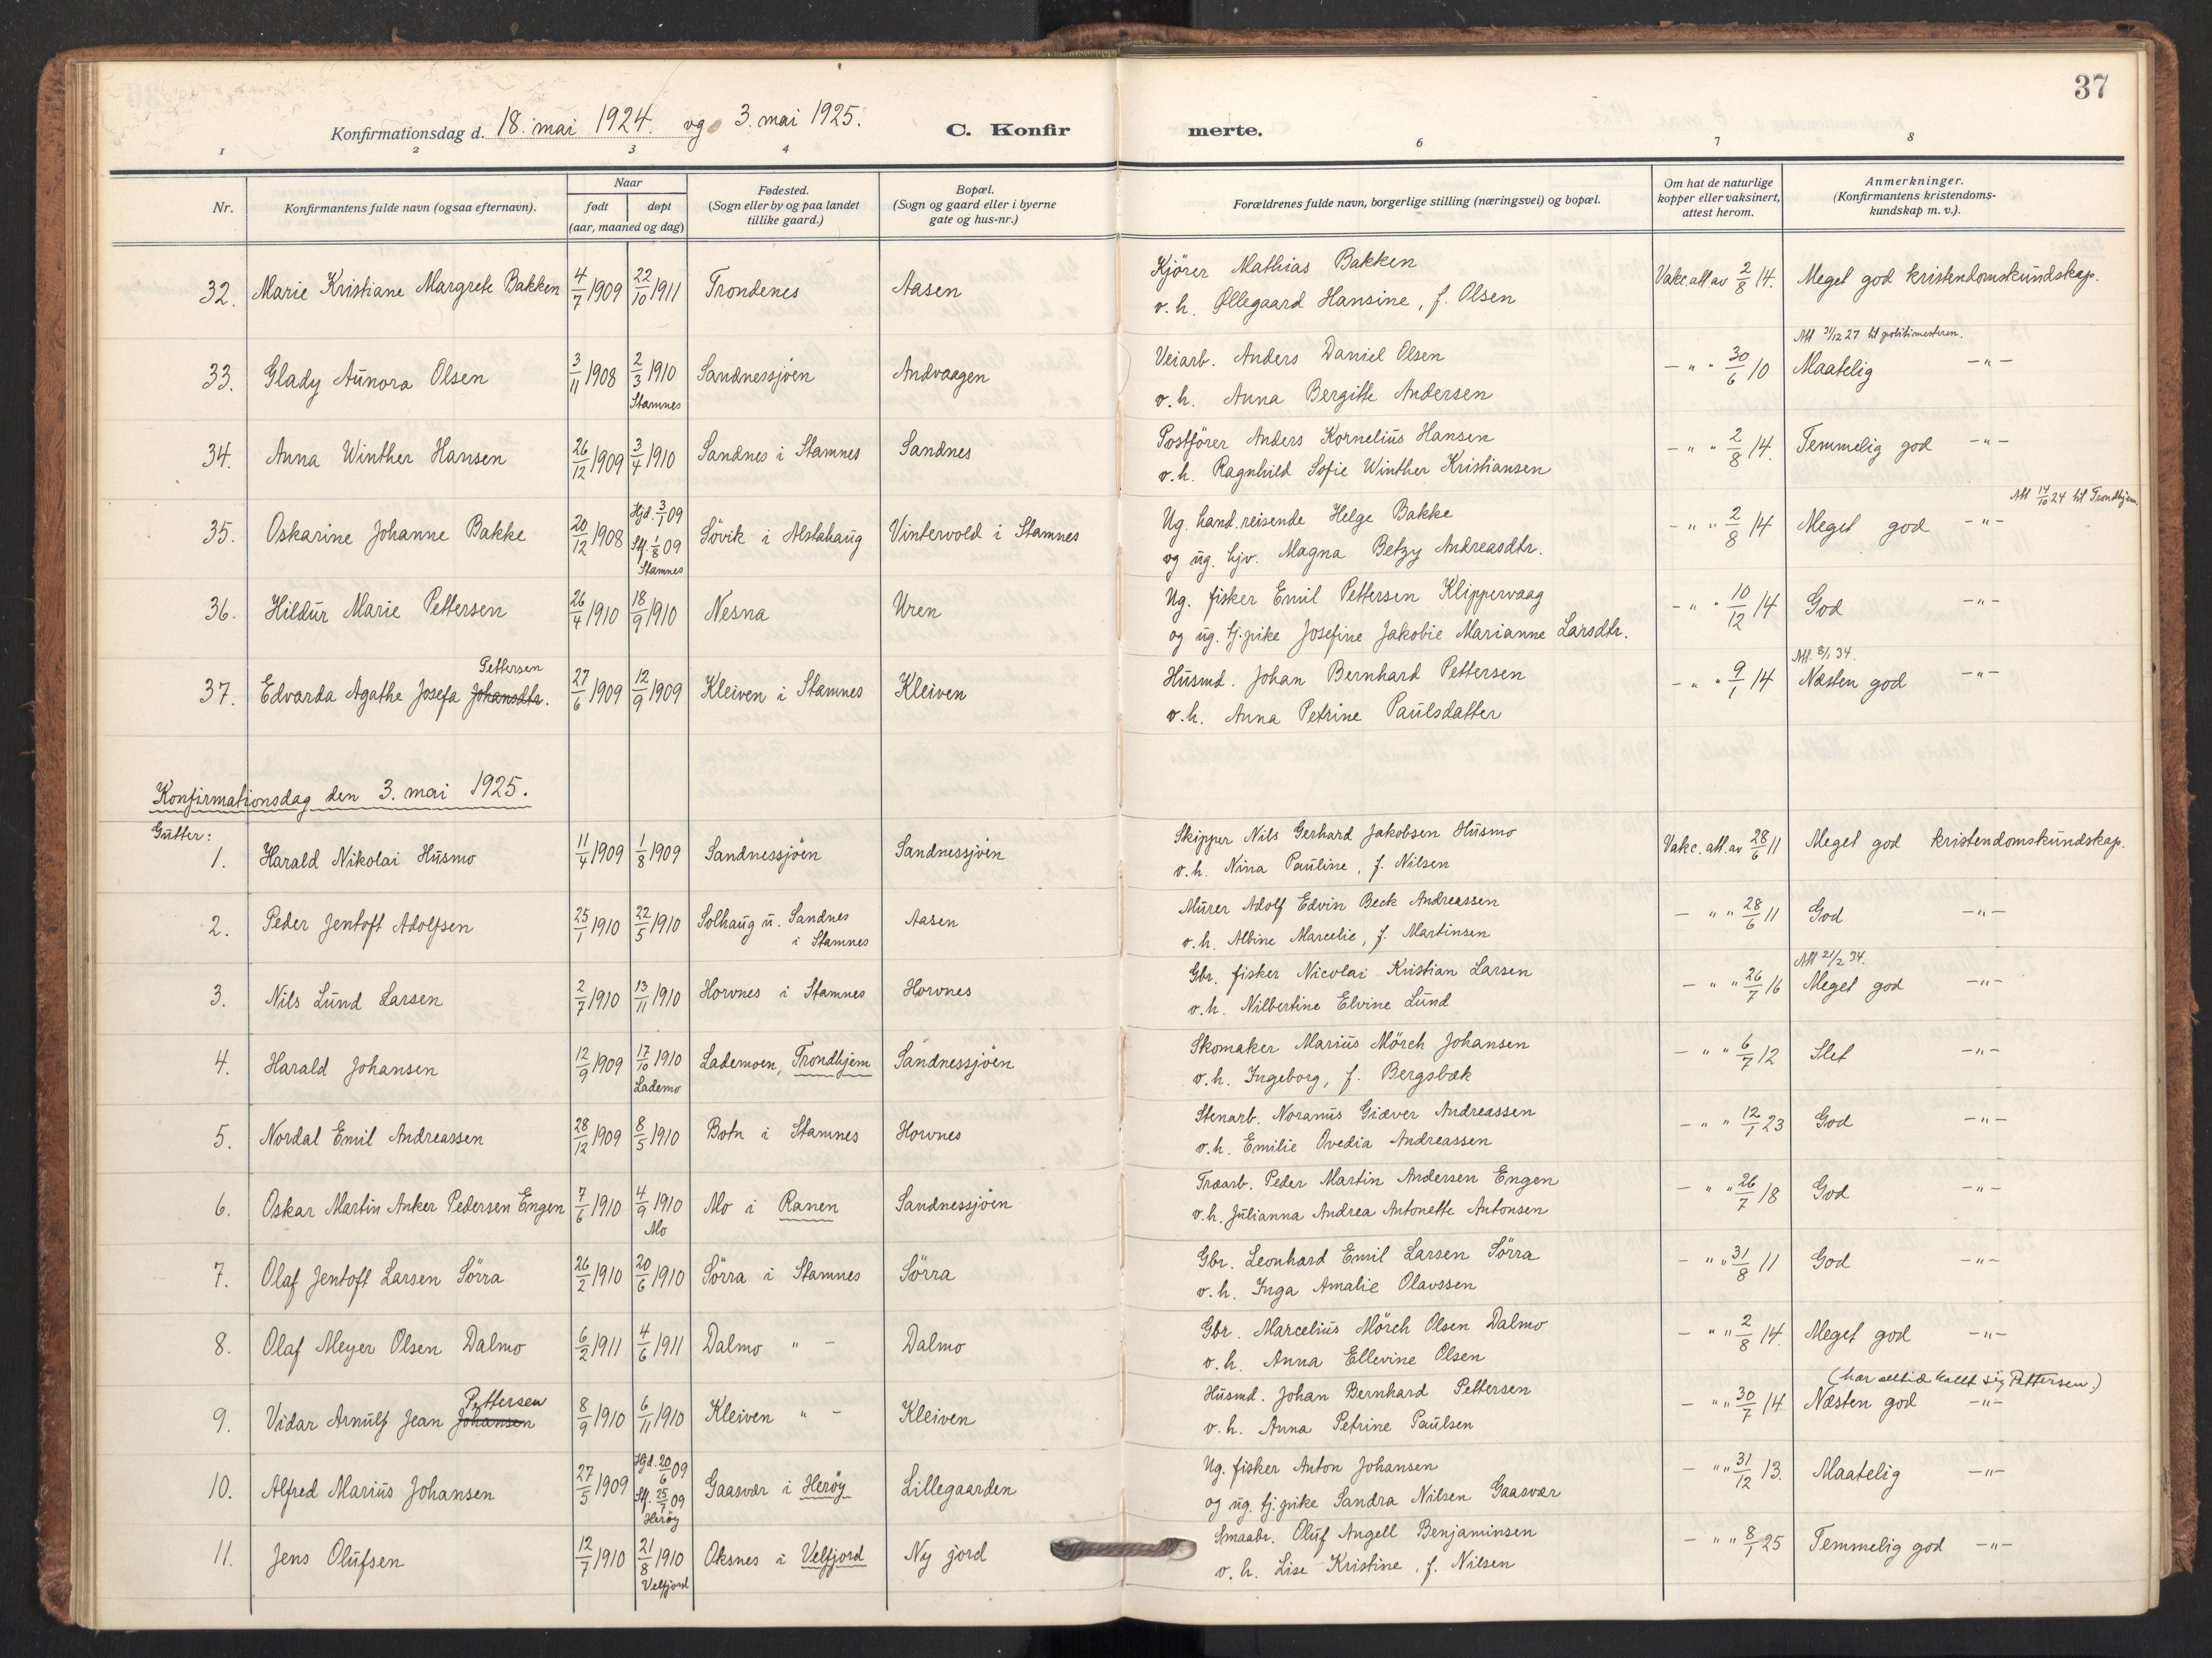 37
Konfirmationsdag d. 18. mai 1924. og 3. mai 1925.
C. Konfirmerte.
1 2 3 4 6 7 8
Nr.
Konfirmantens fulde navn (ogsaa efternavn).
Naar
født døpt
(aar, maaned og dag)
Fødested.
(Sogn eller by og paa landet
tillike gaard.)
Bopæl.
(Sogn og gaard eller i byerne
gate og hus-nr.)
Forældrenes fulde navn, borgerlige stilling (næringsvei) og bopæl.
Om hat de naturlige
kopper eller vaksinert,
attest herom.
Anmerkninger.
(Konfirmantens kristendoms-
kundskap m. v.).
32. Marie Kristiane Margrete Bakken 4/7 1909 22/10 1911 Trondenes Aasen Kjörer Mathias Bakken Vakc. att. av 2/8 14. Meget god kristendomskundskap.
v. h. Øllegaard Hansine, f. Olsen
Att 31/12 27 til politimesteren.
33. Glady Aunora Olsen 3/11 1908 2/3 1910 Sandnessjöen Andvaagen Veiarb. Anders Daniel Olsen — " " 30/6 10 Maatelig —"—
Stamnes
v. h. Anna Bergitte Andersen
34. Anna Winther Hansen 26/12 1909 3/4 1910 Sandnes i Stamnes Sandnes Postförer Anders Kornelius Hansen — " " 2/8 14. Temmelig god —"—
v. h. Ragnhild Sofie Winther Kristiansen
Att 14/10 24 til Trondhjem
35. Oskarine Johanne Bakke 20/12 1908 Hjd. 3/1 09 Stf. 1/8 09 Sövik i Alstahaug Vintervold i Stamnes Ug. hand. reisende Helge Bakke — " " 2/8 14 Meget god —"—
Stamnes
og ug. hjv. Magna Betzy Andreasdtr.
36. Hildur Marie Pettersen 26/4 1910 18/9 1910 Nesna Uren Ug. fisker Emil Pettersen Klippervaag — " " 10/12 14 God —"—
og ug. tj. pike Josefine Jakobie Marianne Larsdtr.
Pettersen
Att. 8/1 34.
37. Edvarda Agathe Josefa Johansdtr. 27/6 1909 12/9 1909 Kleiven i Stamnes Kleiven Husmd. Johan Bernhard Pettersen — " " 9/1 14 Næsten god —"—
v. h. Anna Petrine Paulsdatter
Konfirmationsdag den 3. mai 1925.
Gutter:
1. Harald Nikolai Husmo 11/4 1909 1/8 1909 Sandnessjöen Sandnessjöen Skipper Nils Gerhard Jakobsen Husmo Vakc. att. av 28/6 11 Meget god kristendomskundskap.
v. h. Nina Pauline, f. Nilsen
2. Peder Jentoft Adolfsen 25/1 1910 22/5 1910 Solhaug u. Sandnes i Stamnes Aasen Murer Adolf Edvin Beck Andreassen — " " 28/6 11 God —"—
v. h. Albine Marcelie, f. Martinsen
Att 21/2 34.
3. Nils Lund Larsen 2/7 1910 13/11 1910 Horvnes i Stamnes Horvnes Gbr. fisker Nicolai Kristian Larsen — " " 26/7 16 Meget god —"—
v. h. Nilbertine Elvine Lund
4. Harald Johansen 12/9 1909 17/10 1910 Lademoen, Trondhjem Sandnessjöen Skomaker Marius Mörch Johansen — " " 6/7 12 Slet —"—
Lademo
v. h. Ingeborg, f. Bergsbæk
5. Nordal Emil Andreassen 28/12 1909 8/5 1910 Botn i Stamnes Horvnes Stenarb. Noranus Giæver Andreassen — " " 12/1 23 God —"—
v. h. Emilie Ovedia Andreassen
6. Oskar Martin Anker Pedersen Engen 7/6 1910 4/9 1910 Mo i Ranen Sandnessjöen Træarb. Peder Martin Andersen Engen — " " 26/7 18 God —"—
Mo
v. h. Julianna Andrea Antonette Antonsen
7. Olaf Jentoft Larsen Sörra 26/2 1910 20/6 1910 Sörra i Stamnes Sörra Gbr. Leonhard Emil Larsen Sörra — " " 31/8 11 God —"—
v. h. Inga Amalie Olavssen
8. Olaf Meyer Olsen Dalmo 6/2 1911 4/6 1911 Dalmo " — Dalmo Gbr. Marcelius Mörch Olsen Dalmo — " " 2/8 14. Meget god —"—
v. h. Anna Ellevine Olsen
Pettersen
(har altid kallt sig Pettersen.)
9. Vidar Arnulf Jean Johansen 8/9 1910 6/11 1910 Kleiven " — Kleiven Husmd. Johan Bernhard Pettersen — " " 30/7 14. Næsten god —"—
v. h. Anna Petrine Paulsen
10. Alfred Marius Johansen 27/5 1909 Hjd. 20/6 09 Stf. 25/7 09 Gaasvær i Heröy Lillegaarden Ug. fisker Anton Johansen — " " 31/12 13. Maatelig —"—
Heröy
og ug. tj. pike Sandra Nilsen Gaasvær
11. Jens Olufsen 12/7 1910 21/8 1910 Oksnes i Velfjord Ny jord Smaabr. Oluf Angell Benjaminsen — " " 8/1 25 Temmelig god —"—
Velfjord
v. h. Lise Kristine, f. Nilsen